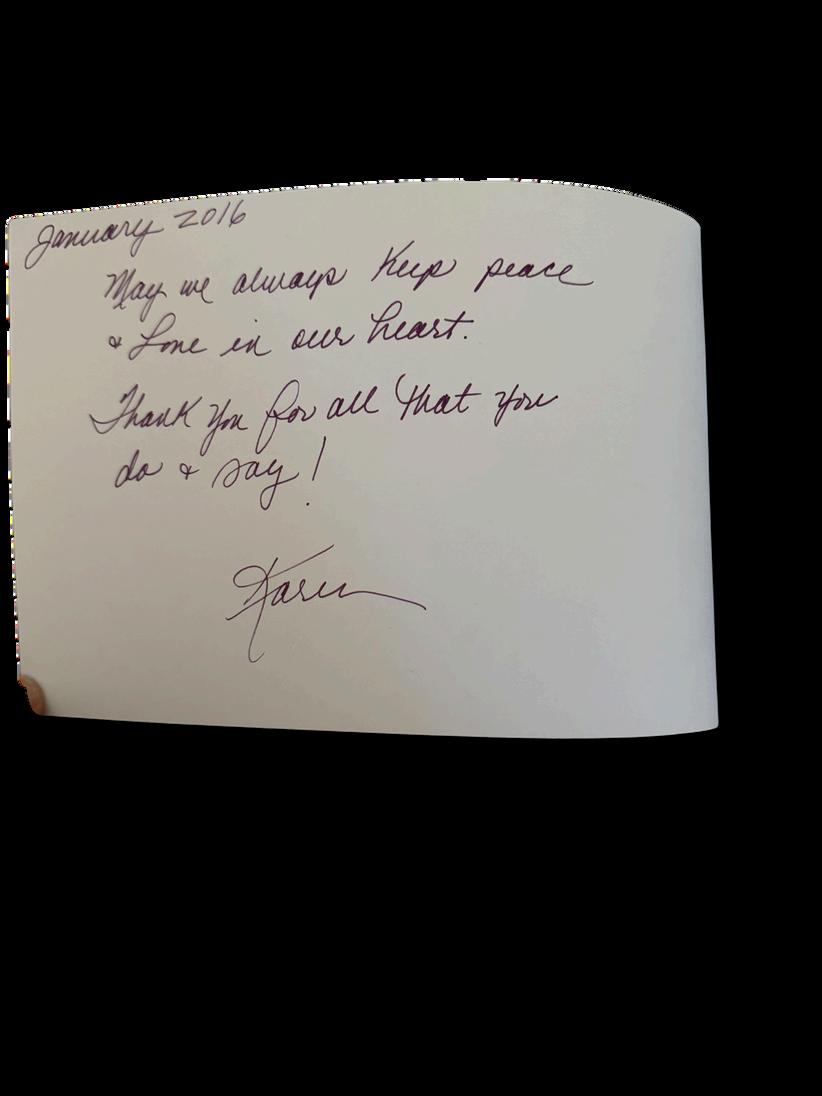 January 2016
May we always Keep peace
& Love in our heart.
Thank You for all that you
do & say!
Karen